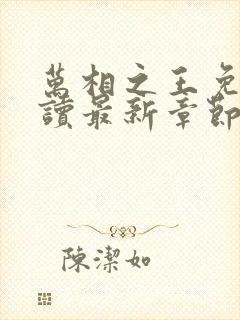 萬相之王免
讀最新章節
陳潔如